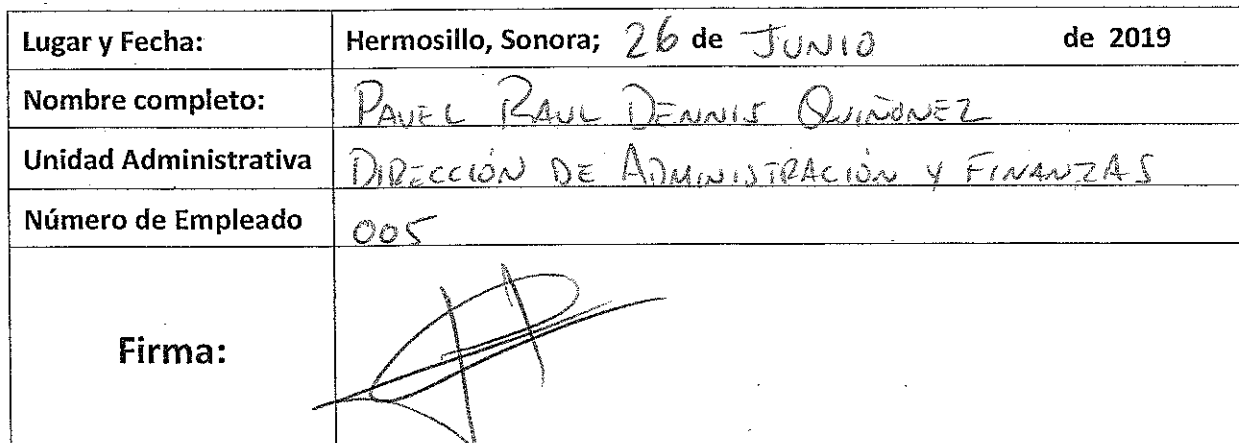 Lugar y Fecha: Hermosillo, Sonora; 26 de JUNIO de 2019
Nombre completo: PAVEL RAUL DENNIS QUIÑONEZ
Unidad Administrativa DIRECCIÓN DE ADMINISTRACIÓN Y FINANZAS
Número de Empleado 005
Firma: